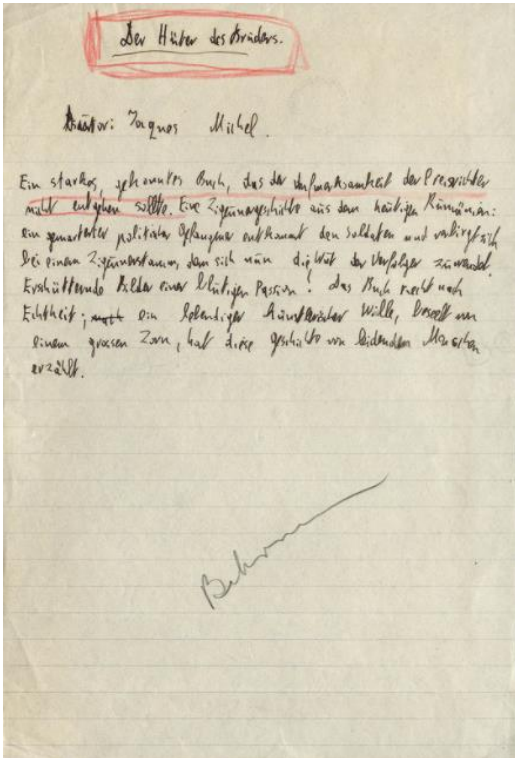 Der Hüter des Bruders.
Autor: Jaques Michel.
Ein starkes, gekonntes Buch, das der Aufmerksamkeit der Preisrichter
nicht entgehen sollte. Eine Zigeunergeschichte aus dem heutigen Rumänien:
ein gemarterter politischer Gefangener entkommt den Soldaten und verbirgt sich
bei einem Zigeunerstamm, dem sich nun die Wut der Verfolger zuwendet.
Erschütternde Bilder einer blutigen Passion! Das Buch riecht nach
Echtheit; ein lebendiger künstlerischer Wille, beseelt von
einem grossen Zorn, hat diese Geschichte von leidenden Menschen
erzählt.